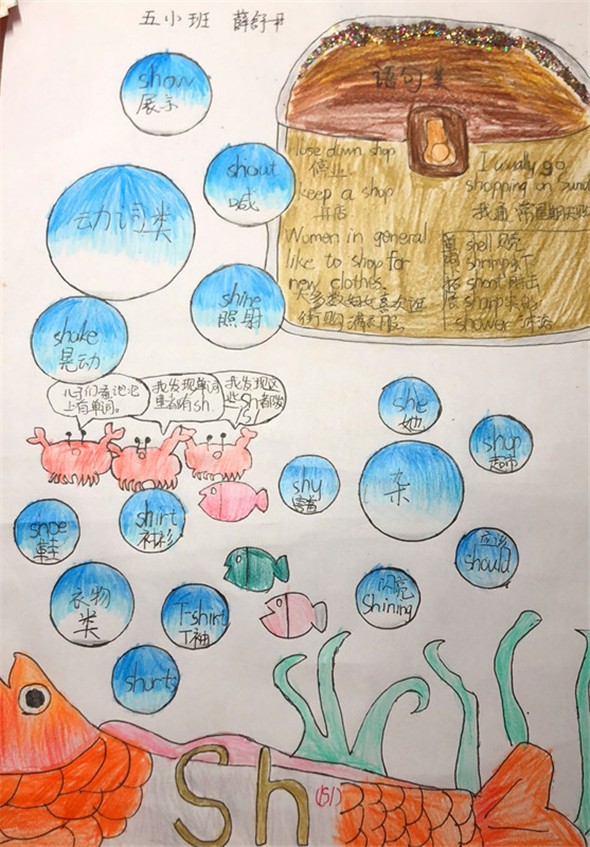 五小班 薛舒丹
show
展示
shout
喊
动词类
shine
照射
shake
晃动
语句类
luse down shop
停业
keep a shop
开店
Women in general
like to shop for
new clothes.
大多数妇女喜欢逛
街购满衣服
I usually go
shopping on sund
我通常星期天
shell 贝壳
shrimp 虾
shoot 射击
sharp
shower 沐浴
儿子们看泡泡
上有单词。
我发现单词
里都有sh.
我发现这
些sh者都
/ʃ/
she
她
shop
shy
害羞
杂
shoe
鞋
shirt
衬衫
应该
should
衣物
类
T-shirt
T袖
闪亮
Shining
shorts
Sh /ʃ/